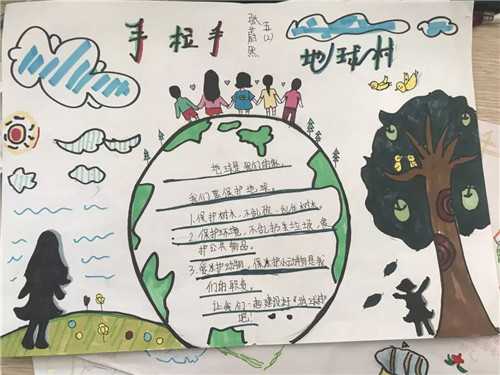 手拉手
地球村
五(2)
地球是我们的家,
我们要保护地球。
1.保护树木,不乱砍、乱伐树木。
2.保护环境,不乱扔垃圾,爱
护公共物品。
3.爱护动物,保护小动物是我
们的职责。
让我们一起建设好"地球村"
吧!